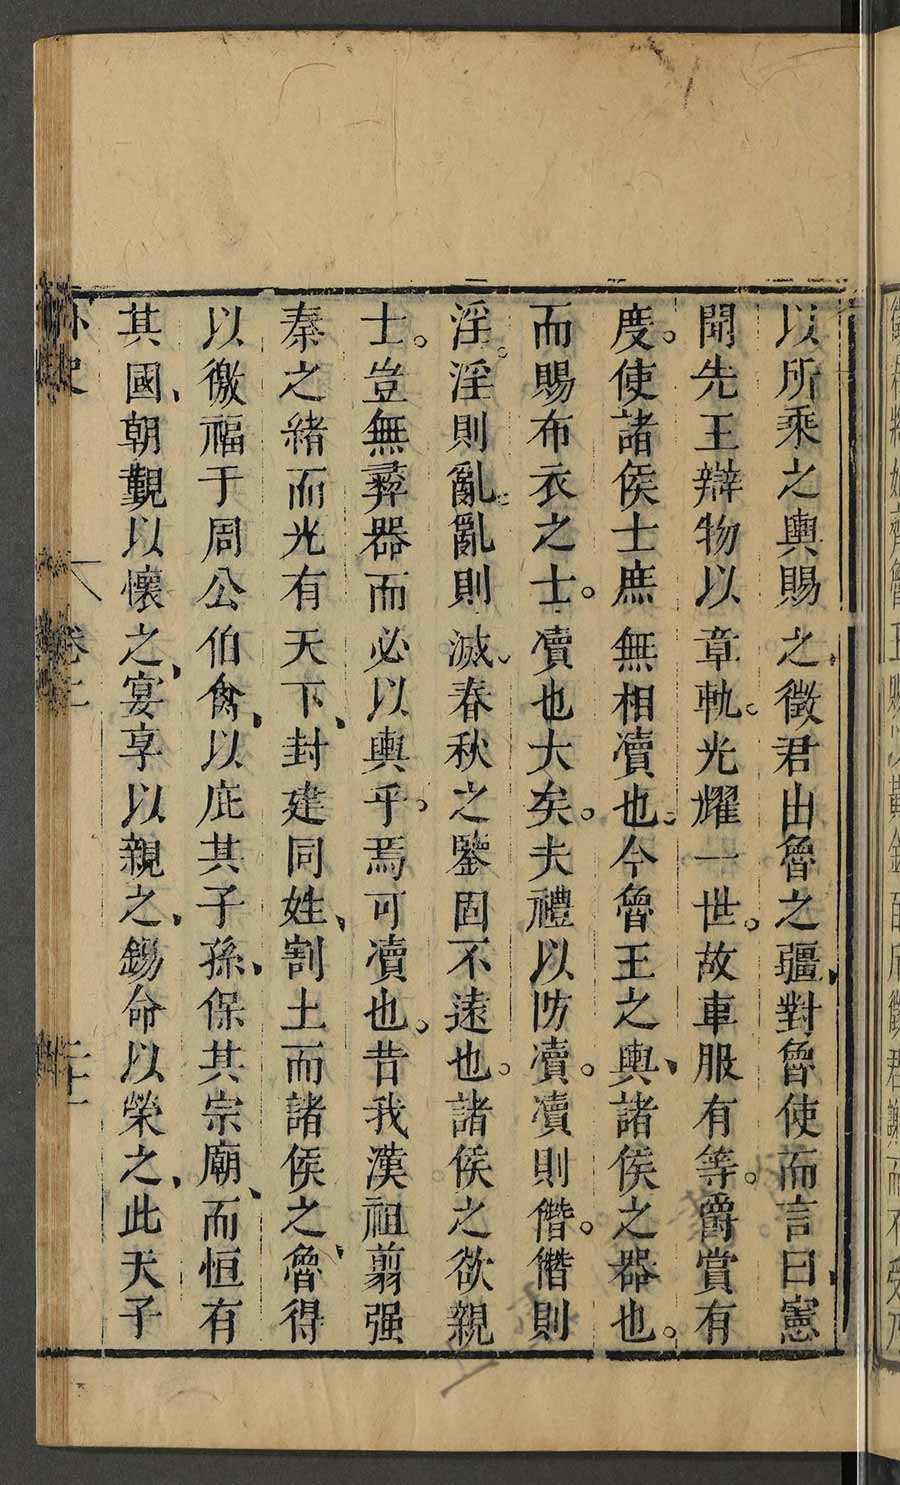 以所乘之輿賜之徵君出魯之疆對魯使而言曰憲
聞先王辯物以章軌光耀一世故車服有等爵賞有
度使諸侯士庶無相凟也今魯王之輿諸侯之器也
而賜布衣之士凟也大矣夫禮以防凟凟則僭僭則
淫淫則亂亂則滅春秋之鑒固不遠也諸侯之欲親
士豈無彜器而必以輿乎焉可凟也昔我漢祖翦强
秦之緒而光有天下封建同姓割土而諸侯之魯得
以徼福于周公伯禽以庇其子孫保其宗廟而恒有
其國朝覲以懷之宴享以親之錫命以榮之此天子
外史
卷上